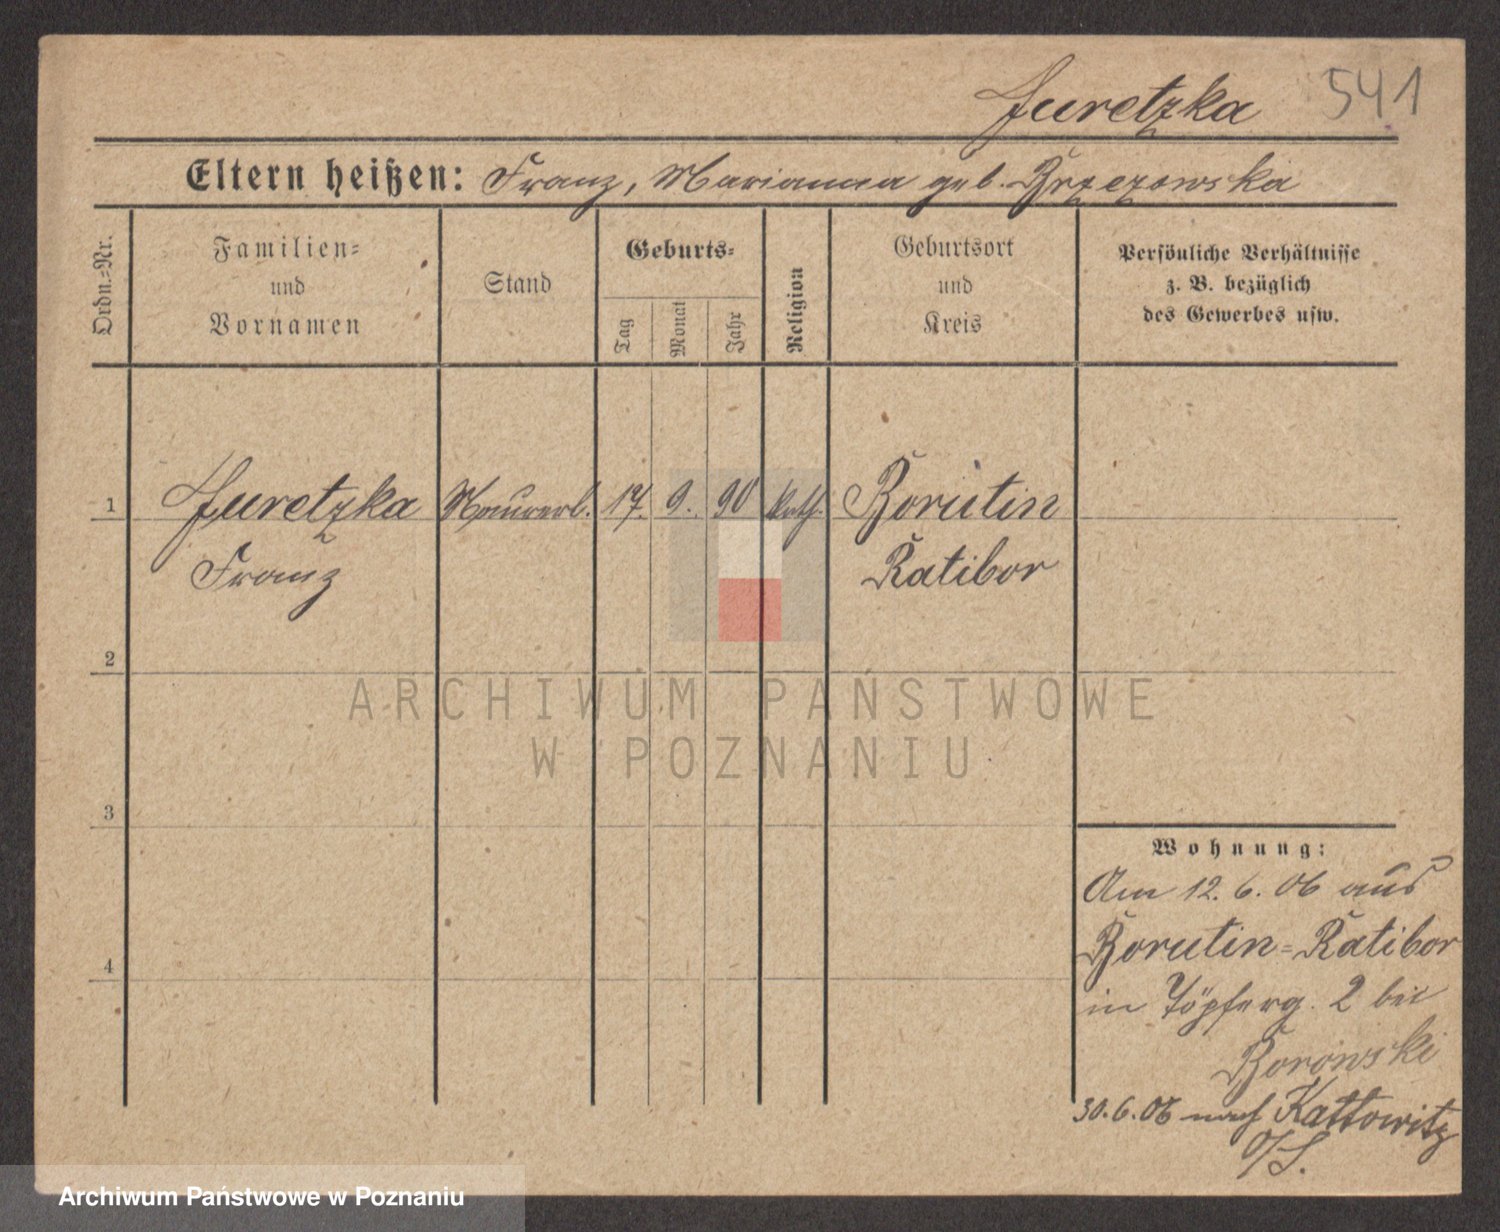 Juretzka 541
Eltern heißen: Franz, Marianna geb. Brzezowska
Ordn.=Nr.
Familien=
und
Vornamen
Stand
Geburts=
Tag
Monat
Jahr
Religion
Geburtsort
und
Kreis
Persönliche Verhältnisse
z. B. bezüglich
des Gewerbes usw.
1 Juretzka Maurerl. 17. 9. 90 kath. Borutin
Franz Ratibor
2
3
4
Wohnung:
Am 12. 6. 06 aus
Borutin=Ratibor
in Töpferg. 2 bei
Borowski
30.6.06 nach Kattowitz
O/S.
ARCHIWUM PAŃSTWOWE
W POZNANIU
Archiwum Państwowe w Poznaniu